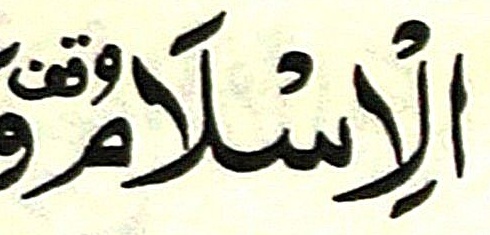 الْاِسْلَامُ وقف